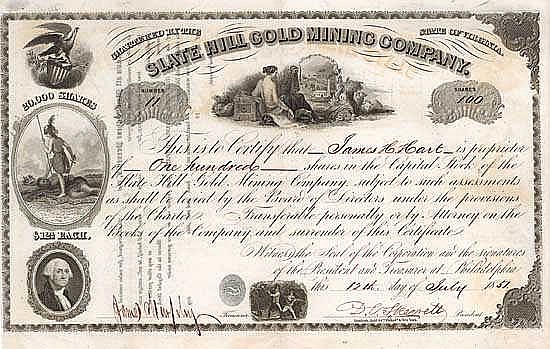 CHARTERED BY THE STATE OF VIRGINIA.
SLATE HILL GOLD MINING COMPANY.
NUMBER
11
SHARES
100
20,000 SHARES
$12½ EACH.
This is to Certify that James H Hart is proprietor
of One hundred shares in the Capital Stock of the
Slate Hill Gold Mining Company, subject to such assessments
as shall be levied by the Board of Directors under the provisions
of the Charter. Transferable personally or by Attorney on the
Books of the Company and surrender of this Certificate.
Witness the Seal of the Corporation and the signatures
of the President and Treasurer at Philadelphia
this 12th day of July 1851
Treasurer
President